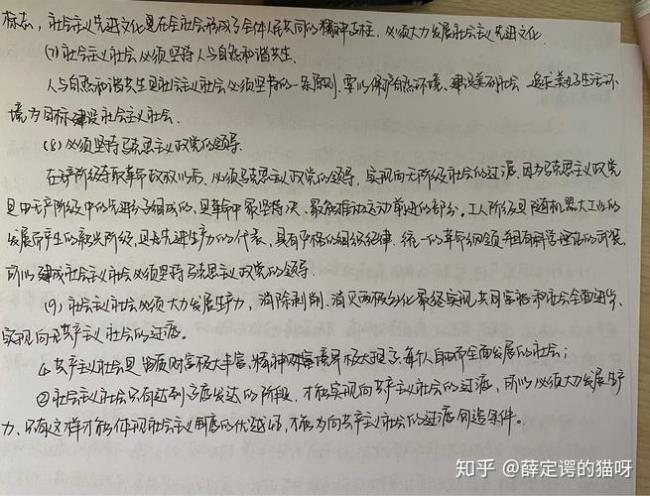 标志，社会主义先进文化是在全社会形成了全体人民共同的精神支柱，必须大力发展社会主义先进文化。
(7)社会主义社会必须坚持人与自然和谐共生.
人与自然和谐共生是社会主义社会必须坚持的一条原则，要以保护自然环境、建设美丽社会、追求美好生活环
境为目标建设社会主义社会.
(8)必须坚持马克思主义政党的领导.
在无产阶级夺取革命政权以后，必须马克思主义政党的领导，实现向无阶级社会的过渡，因为马克思主义政党
是由无产阶级中的先进分子组成的，是革命中最坚持决、最能推动运动前进的部分。工人阶级是随机器大工业的
发展而产生的新兴阶级，且为先进生产力的代表，具有严格的组织纪律、统一的革命纲领和拥有科学理论的武装，
所以建成社会主义社会必须坚持马克思主义政党的领导.
(9)社会主义社会必须大力发展生产力，消除剥削、消灭两极分化最终实现共同富裕和社会全面进步，
实现向共产主义社会的过渡.
①共产主义社会是物质财富极大丰富，精神境界极大提高，每个人自由而全面发展的社会；
②社会主义社会只有达到了高度发达的阶段，才能实现向共产主义社会的过渡，所以必须大力发展生产
力，只有这样才能体现社会主义制度的优越性，才能为向共产主义社会的过渡创造条件。
知乎 @薛定谔的猫呀